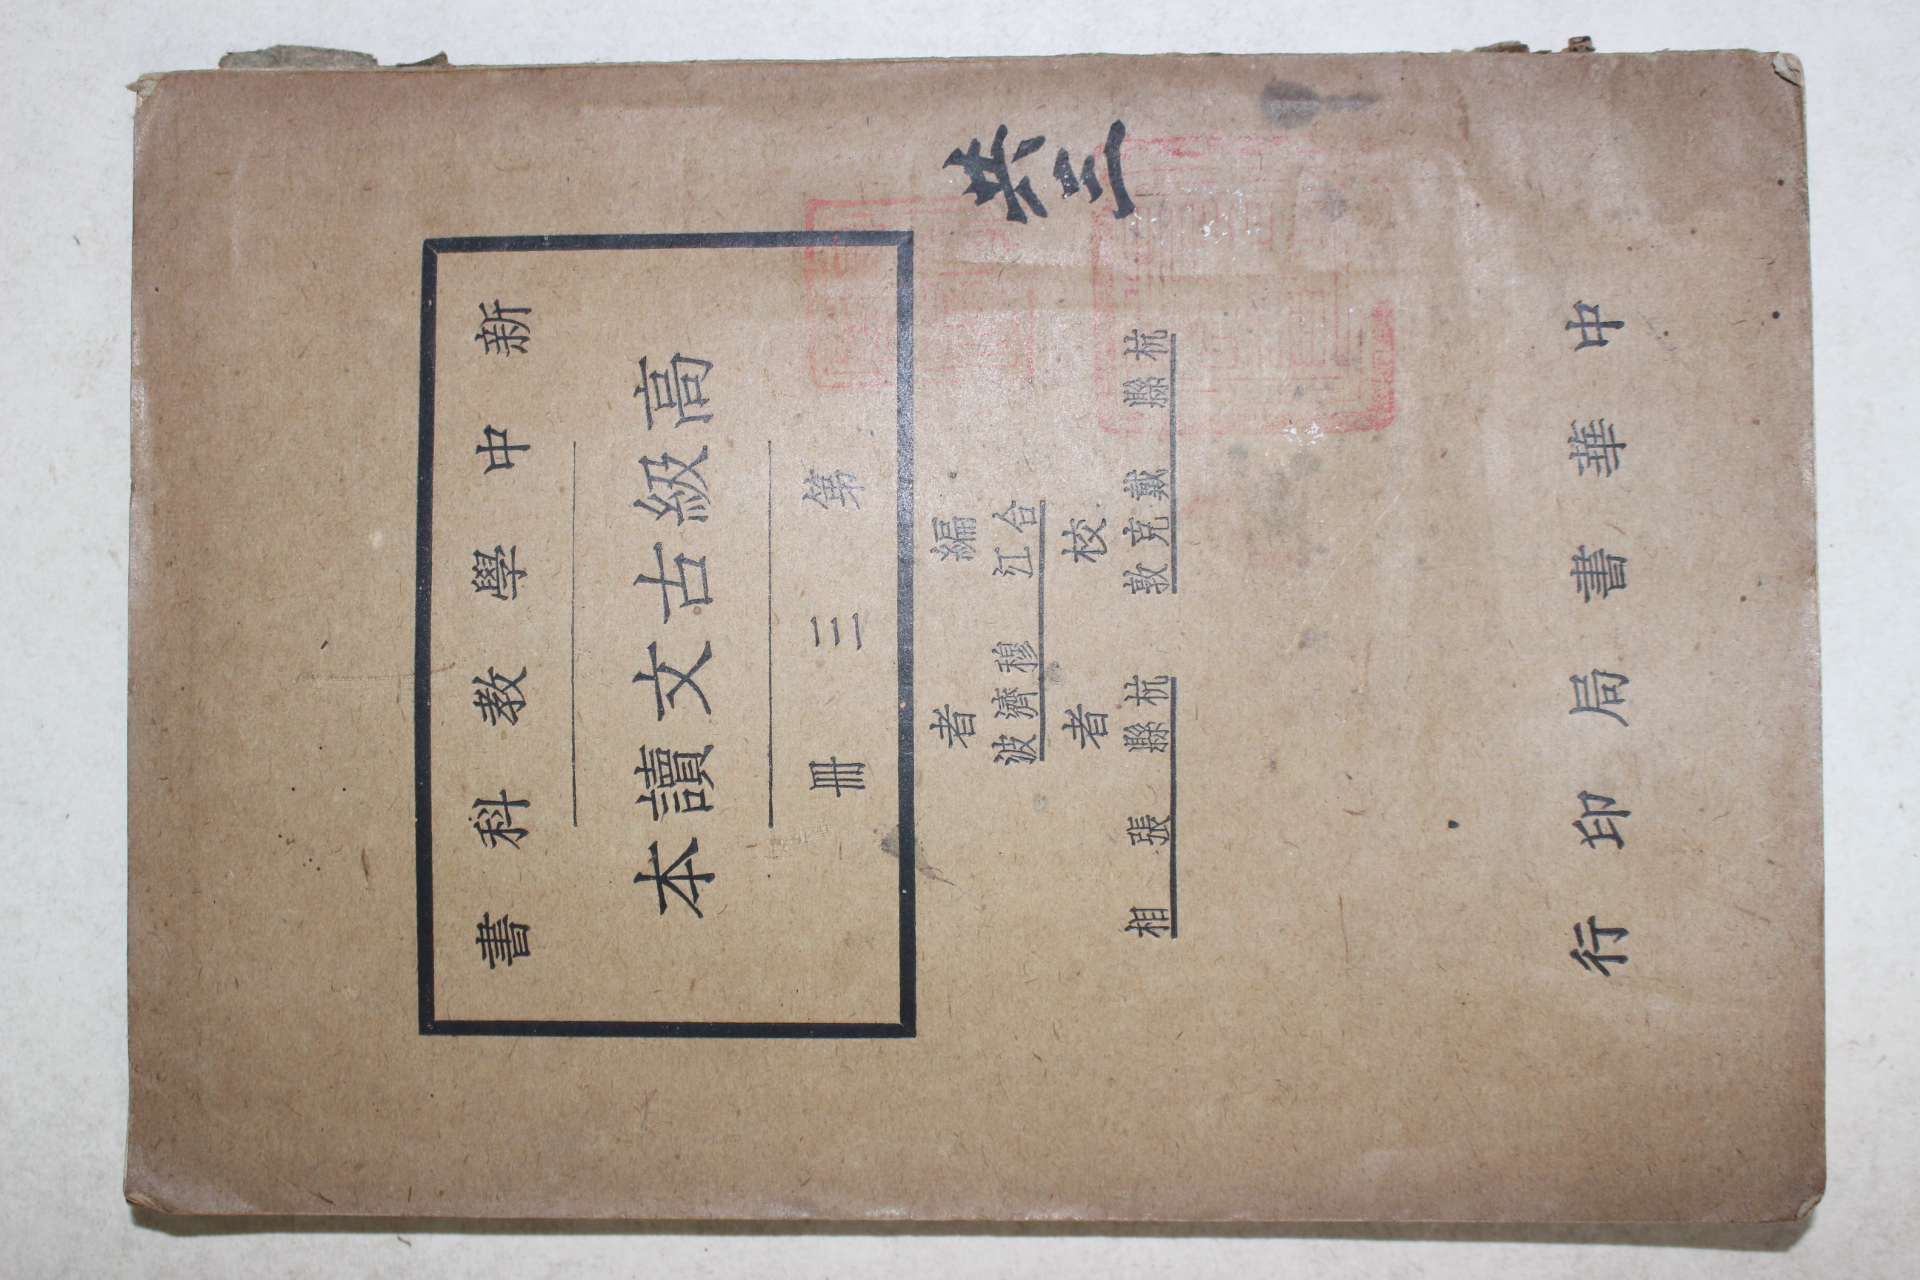 新中學教科書
高級古文讀本
第三冊
共三
編者
合江穆濟波
校者
杭縣戴克敦 杭縣張相
中華書局印行